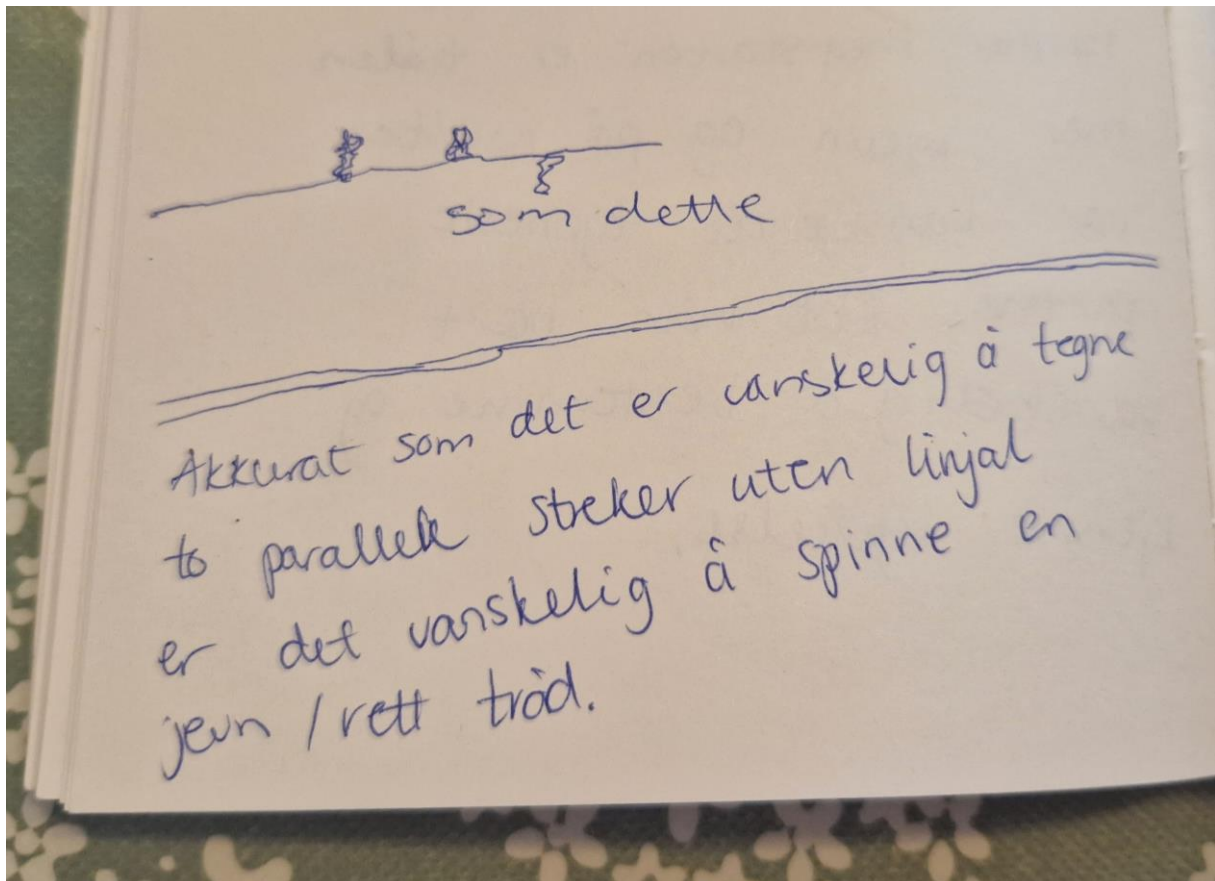 som dette
Akkurat som det er vanskelig å tegne
to parallele streker uten linjal
er det vanskelig å spinne en
jevn / rett tråd.